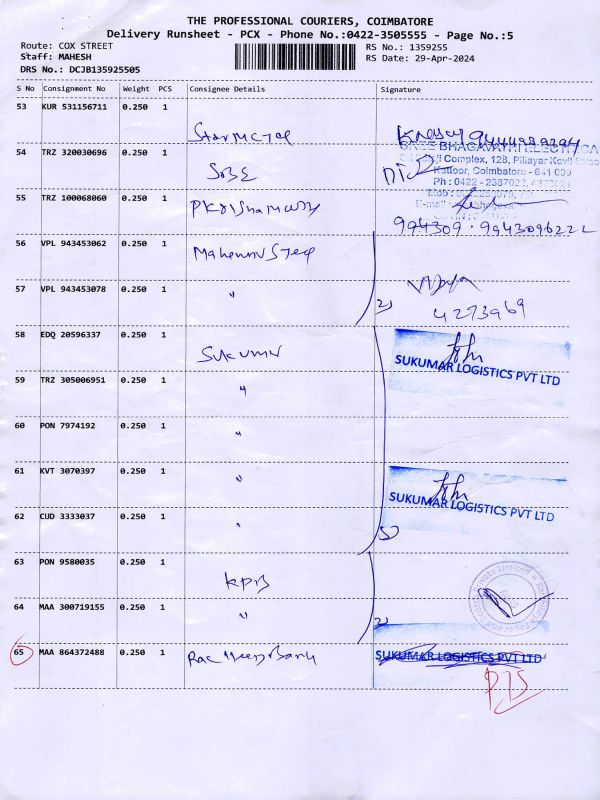 THE PROFESSIONAL COURIERS, COIMBATORE
Delivery Runsheet - PCX - Phone No.:0422-3505555 - Page No.:5
Route: COX STREET
Staff: MAHESH
DRS No.: DCJB135925505
RS No.: 1359255
RS Date: 29-Apr-2024
S No Consignment No Weight PCS Consignee Details Signature
53 KUR 531156711 0.250 1
54 TRZ 320030696 0.250 1
SREE BHAGAVATHI ELECTRICA
Complex, 128, Pillayar Kovil Street
Kattoor, Coimbatore - 641 009
Ph : 0422 - 2387022
55 TRZ 100068060 0.250 1
E-mail :
994309 . 9943096222
56 VPL 943453062 0.250 1
57 VPL 943453078 0.250 1 " 2) Vijaya
4273969
58 EDQ 20596337 0.250 1 Sukumar
SUKUMAR LOGISTICS PVT LTD
59 TRZ 305006951 0.250 1 "
60 PON 7974192 0.250 1 "
61 KVT 3070397 0.250 1 "
SUKUMAR LOGISTICS PVT LTD
62 CUD 3333037 0.250 1 " 5)
63 PON 9580035 0.250 1 KPB
64 MAA 300719155 0.250 1 " 2)
65 MAA 864372488 0.250 1
SUKUMAR LOGISTICS PVT LTD